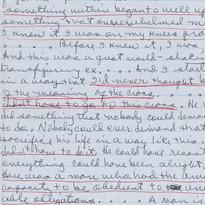 something within began to well u
something that overwhelmed m
I knew it I was on my knees pra
Before I knew it, I was
And this was a great world-shak
transfigur ex And I sta
in a way that I'd never thought b
of the meaning of the cross.
didn't have to go to this cross. He
did something that nobody could dema
to do. Nobody could ever demand that
sacrifice his life in a way like this
didn't have to do it. He could have recan
everything could have been alright.
Here was a man who had the am
capacity to be obedient to
able obligations A man is